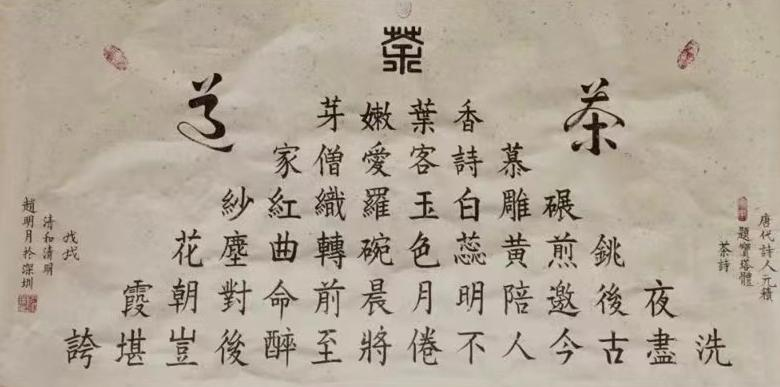 茶
茶道
香葉嫩芽
慕詩客愛僧家
碾雕白玉羅織紅紗
銚煎黃蕊色碗轉曲塵花
夜後邀陪明月晨前命對朝霞
洗盡古今人不倦將至醉後豈堪誇
唐代詩人元稹
題寶塔體
茶詩
戊戌
清和清明
趙明月於深圳